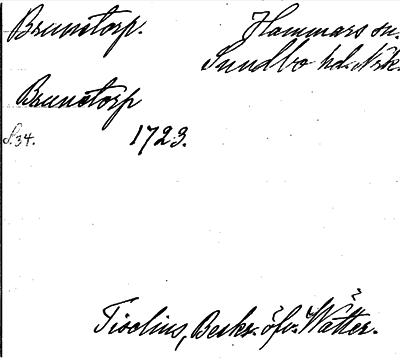 Brunstorp.
Hammars sn.
Sundbo hd. Nrk.
Brunstorp
S. 34.
1723.
Tiselius, Beskr. öfv. Wätter.